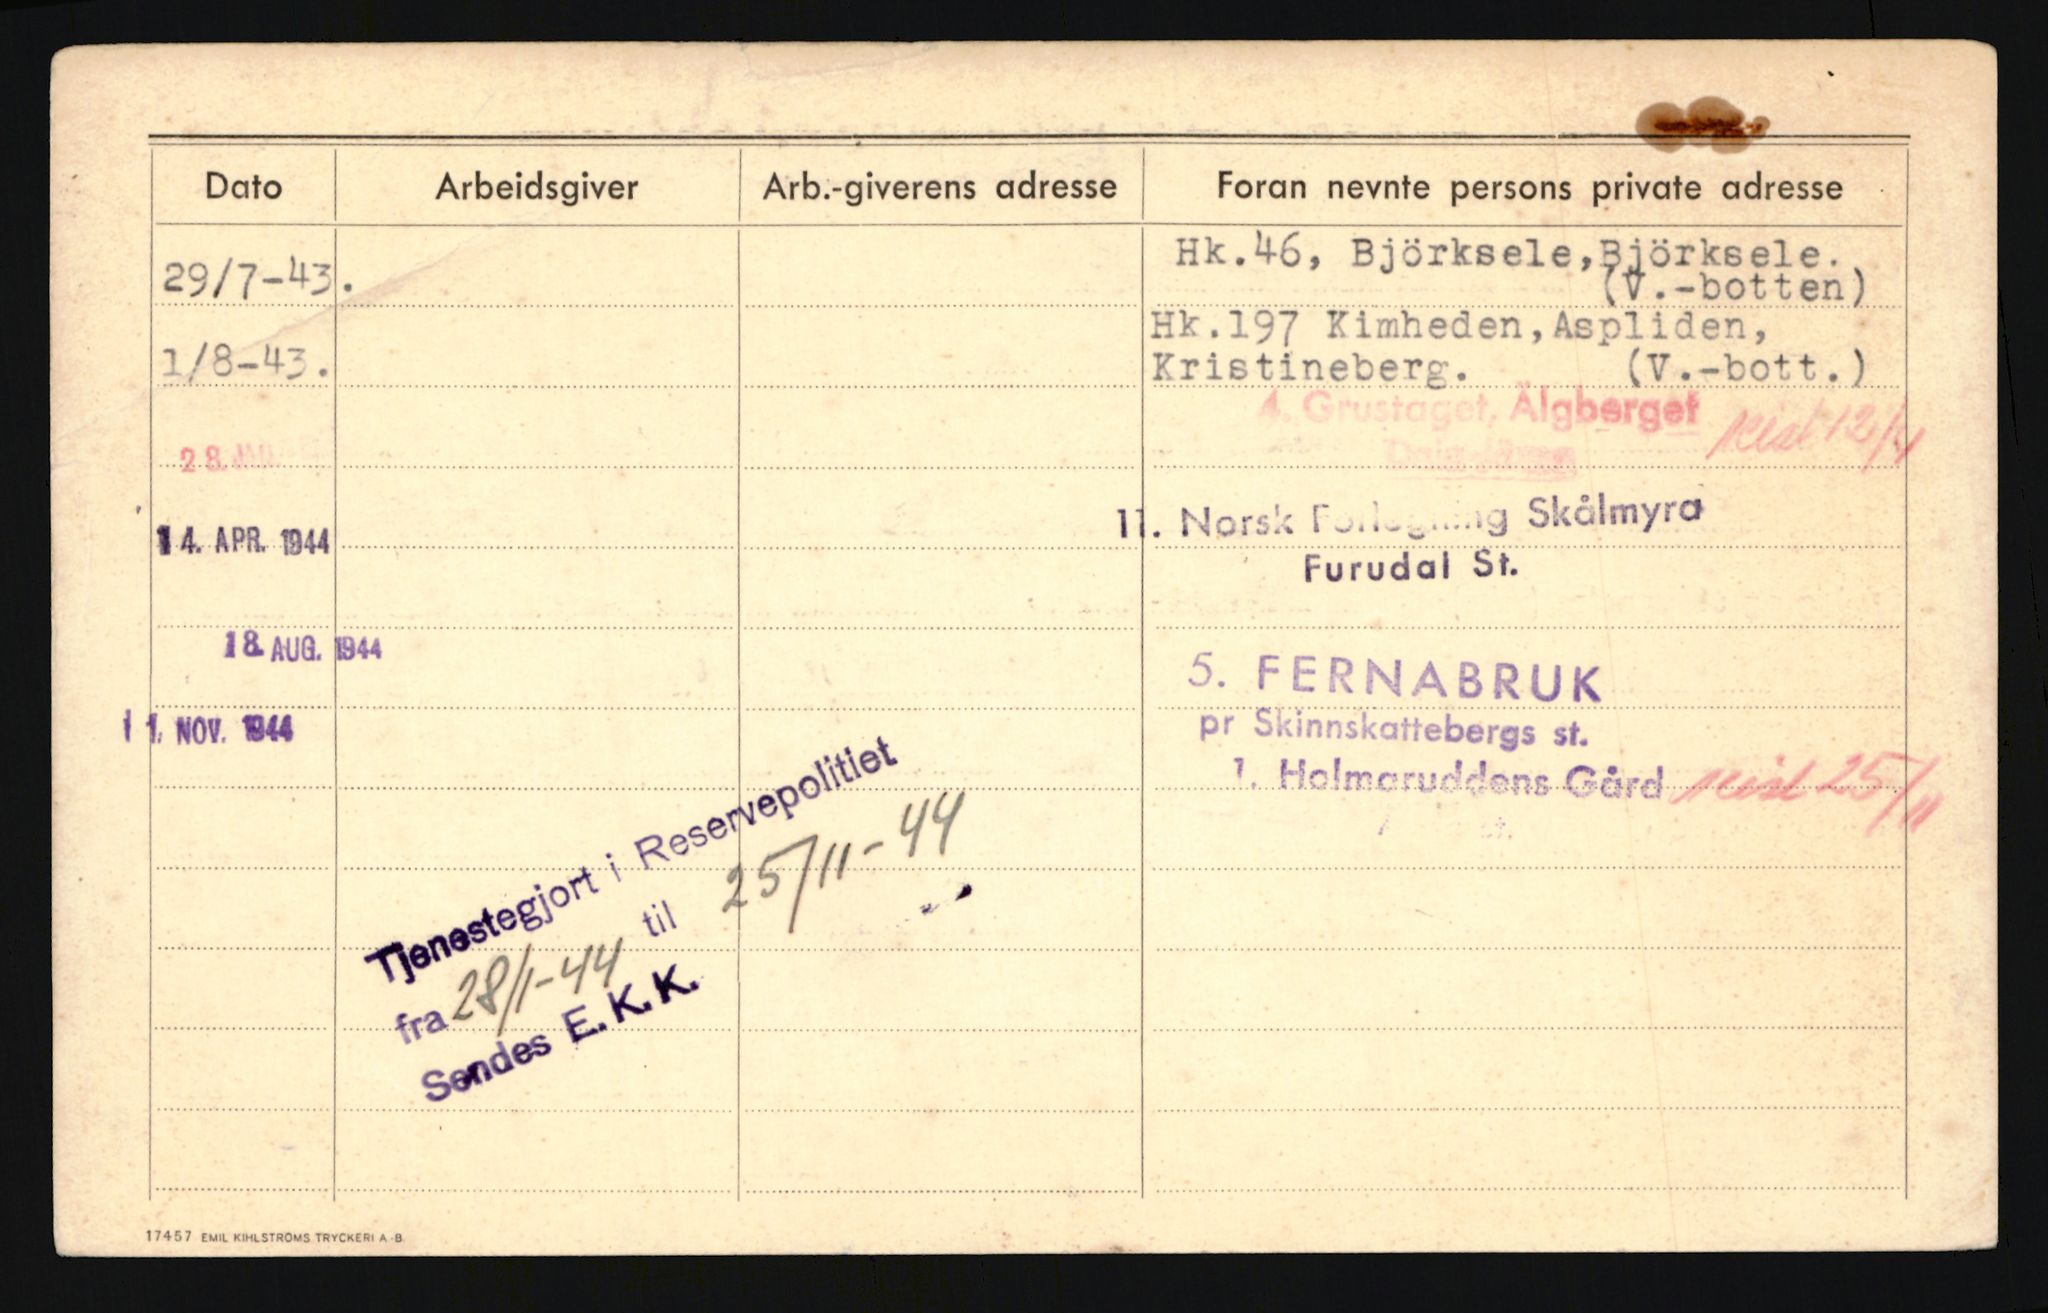 Dato Arbeidsgiver Arb.-giverens adresse Foran nevnte persons private adresse
29/7-43. Hk.46, Björksele,Björksele.
(V.-botten)
Hk.197 Kimheden,Aspliden,
1/8-43. Kristineberg. (V.-bott.)
4. Grustaget, Älgberget
28. reist 12/4
11. Norsk Forlegning Skålmyra
14. APR. 1944
Furudal St.
18. AUG. 1944
5. FERNABRUK
11. NOV. 1944 pr Skinnskattebergs st.
1. Holmaruddens Gård reist 25/11
st.
Tjenestegjort i Reservepolitiet
fra 28/1-44 til 25/11-44
Sendes E.K.K.
17457 EMIL KIHLSTRÖMS TRYCKERI A.-B.